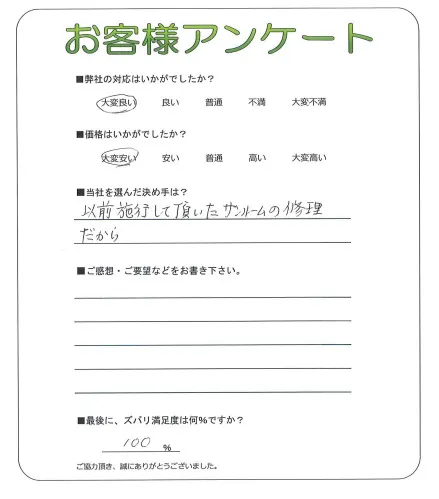 お客様アンケート
■弊社の対応はいかがでしたか?
大変良い 良い 普通 不満 大変不満
■価格はいかがでしたか?
大変安い 安い 普通 高い 大変高い
■当社を選んだ決め手は?
以前施行して頂いたサンルームの修理
だから
■ご感想・ご要望などをお書き下さい。
■最後に、ズバリ満足度は何%ですか?
100 %
ご協力頂き、誠にありがとうございました。